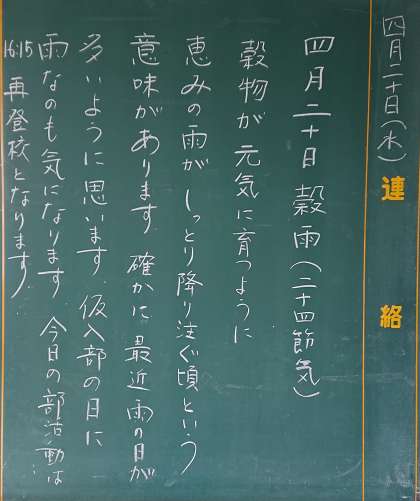 四月二十日(水)
連絡
四月二十日 穀雨(二十四節気)
穀物が 元気に育つように
恵みの雨が しっとり降り注ぐ頃という
意味があります 確かに 最近 雨の日が
多いように思います 仮入部の日に
雨なのも気になります 今日の部活動は…
16:15 再登校となります…